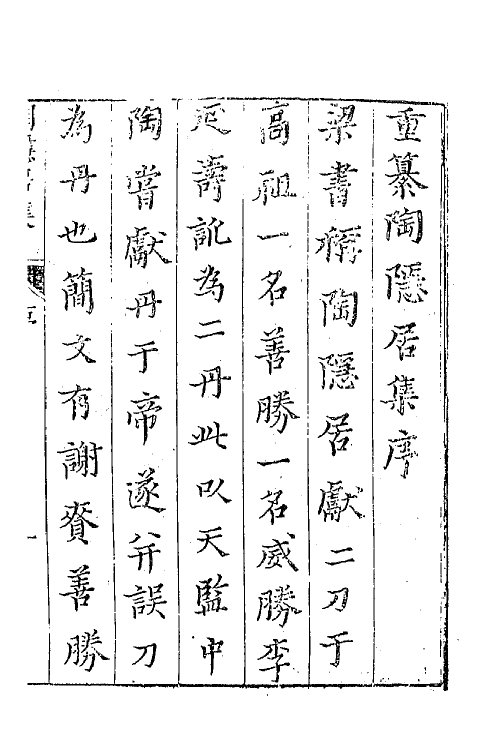 重纂陶隱居集序
梁書稱陶隱居獻二刀于
高祖一名善勝一名威勝李
延壽訛為二丹此以天監中
陶嘗獻丹于帝遂并誤刀
為丹也簡文有謝賚善勝